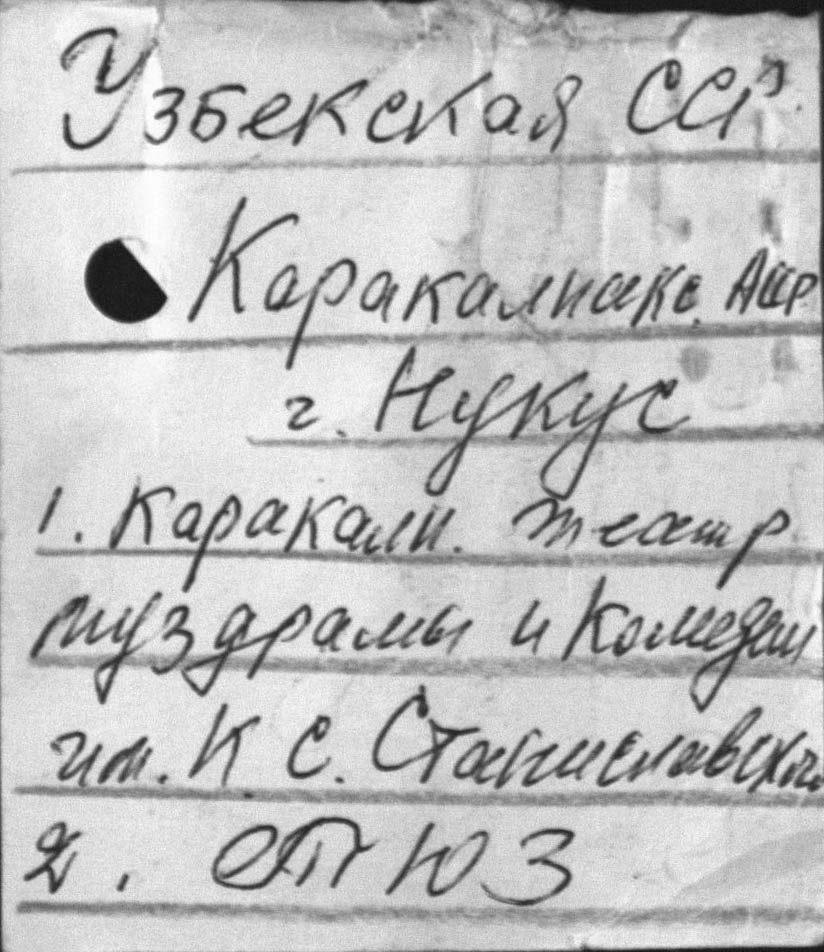 Узбекская ССР
Каракалпакс. АССР
г. Нукус
1. Каракалп. театр
муздрамы и комедии
им. К. С. Станиславского
2. ТЮЗ